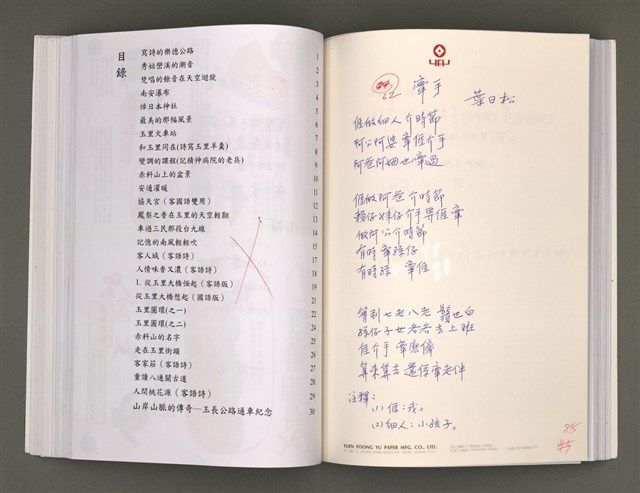 目錄
寫詩的樂德公路 1
秀姑巒溪的潮音 2
雙唱的餘音在天空迴旋 3
南安瀑布 4
悼日本神社 5
最美的那幅風景 6
玉里火車站 7
和玉里同在(詩寫玉里羊羹) 8
變調的課程(記精神病院的老兵) 9
赤科山上的盆景 10
安通濯暖 11
協天宮(客國語雙用) 12
鳳梨之香在玉里的天空輕翻 13
車過三民那段台九線 14
記憶的南風輕輕吹 15
客人城(客語詩) 17
人情味香又濃(客語詩) 18
1. 從玉里大橋恬起(客語版) 19
從玉里大橋想起(國語版) 21
玉里圓環(之一) 22
玉里圓環(之二) 23
赤科山的名字 24
走在玉里街頭 25
客家莊(客語詩) 26
重讀八通關古道 27
人間桃花源(客語詩) 29
山岸山脈的傳奇—玉長公路通車紀念 30
62
牽手
葉日松
𠊎做細人介時節
阿公阿婆牽𠊎介手
阿爸阿姆也牽過
𠊎做阿爸介時節
賴仔妹仔介手畀𠊎牽
做阿公介時節
有時牽孫仔
有時孫牽𠊎
等到七老八老 鬚也白
孫仔子女各各去上班
𠊎介手牽麼儕
算來算去還係牽老伴
註釋:
(1) 𠊎:我。
(2) 細人:小孩子。
YUEN FOONG YU PAPER MFG. CO., LTD.
85